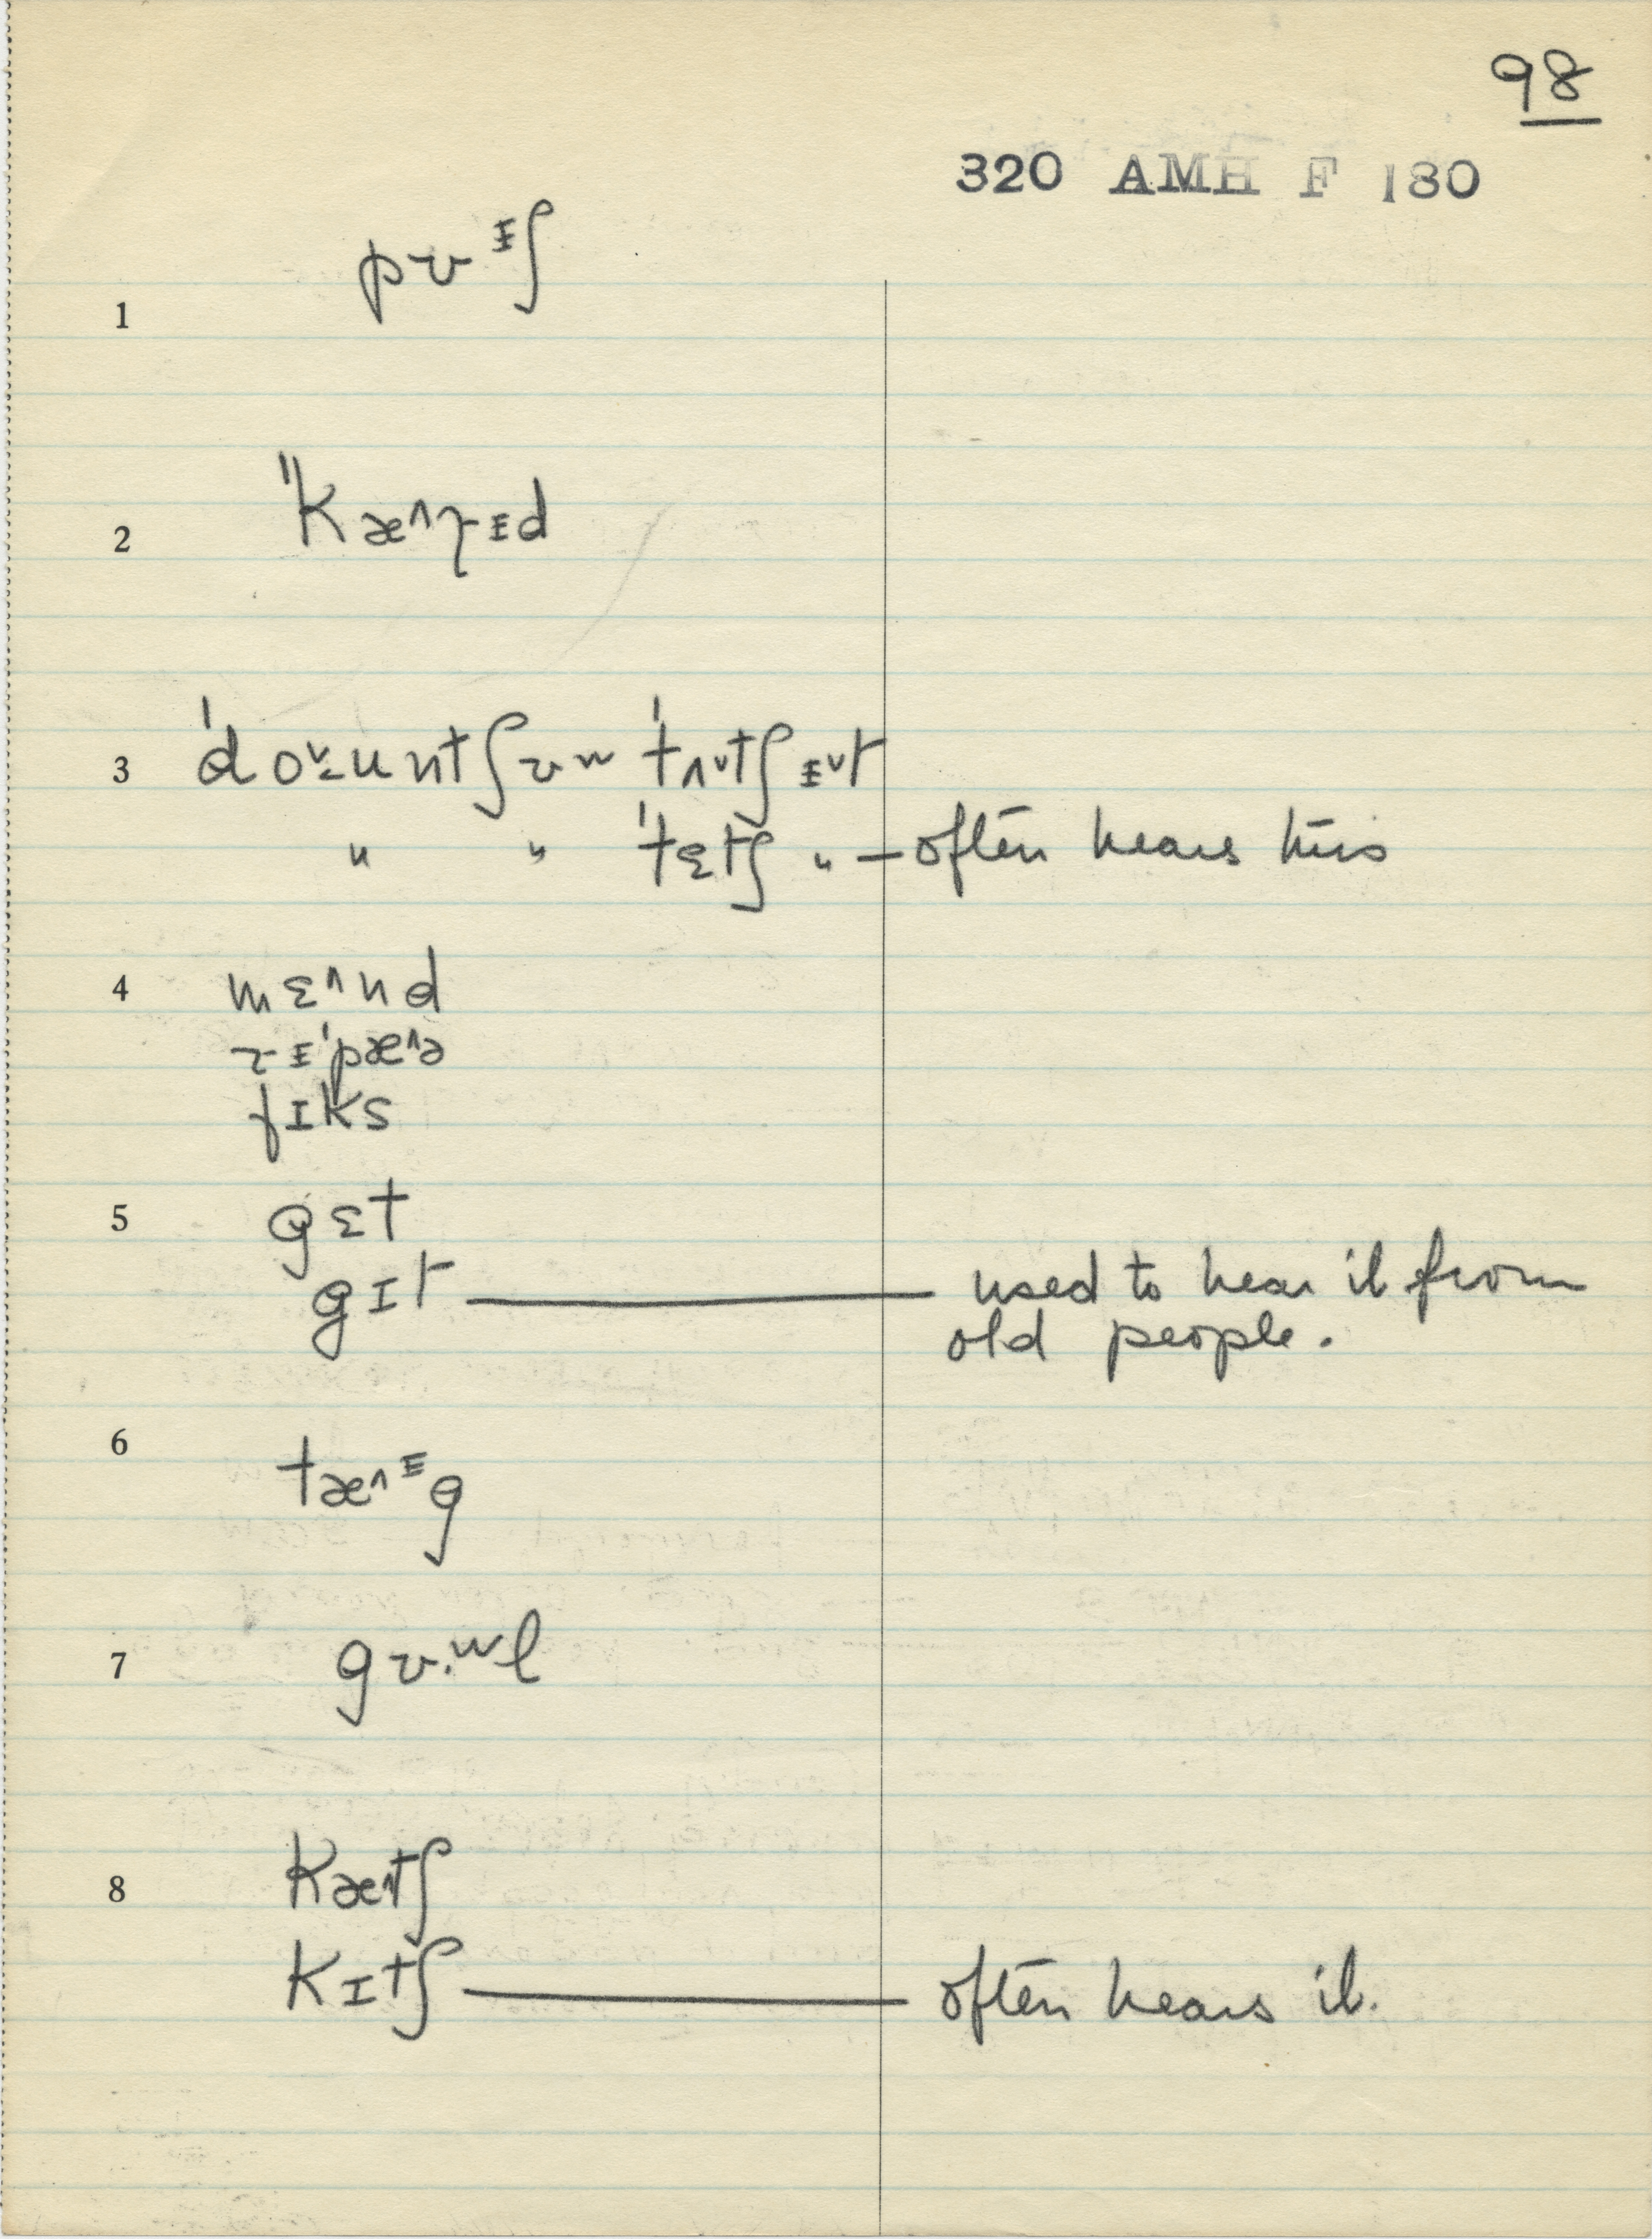 98
320 AMH F 180
1 pʊᵻʃ
2 "kæ^ɽᵻd
3 'do˅ʉntʃʊʷ 'tʌ˅tʃᵻ˅t
" " 'tɛtʃ " — often hears this
4 mɛ^nd
ɽᵻ'pæ^ə
fɪks
5 gɛt
gɪt — used to hear it from
old people.
6 tæ^ᵻg
7 gʊ.ʷl
8 kæ^tʃ
kɪtʃ — often hears it.